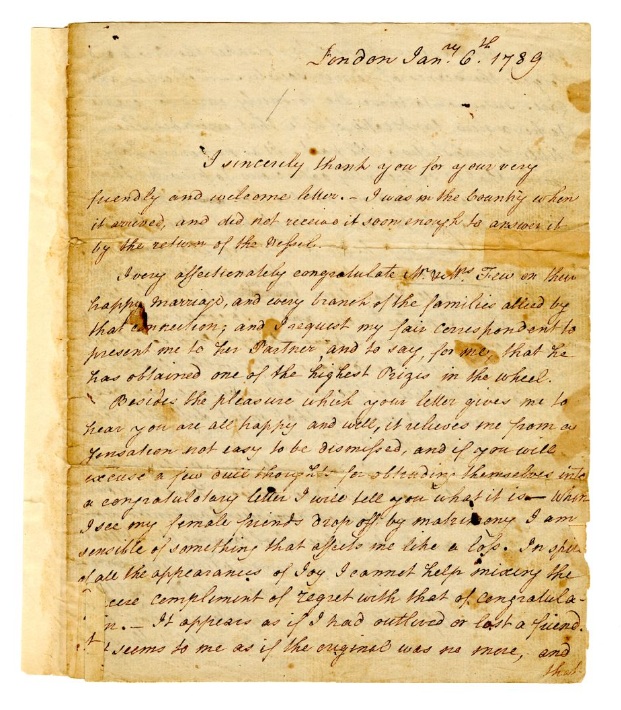 London Jan.ry 6.th 1789
I sincerely thank you for your very
friendly and welcome letter. – I was in the Country when
it arrived, and did not receive it soon enough to answer it
by the return of the Vessel.
I very affectionately congratulate Mr. & Mrs. Few on their
happy marriage, and every branch of the families allied by
that connection; and I request my fair correspondent to
present me to her Partner, and to say, for me, that he
has obtained one of the highest Prizes in the wheel.
Besides the pleasure which your letter gives me to
hear you are all happy and well, it relieves me from a
sensation not easy to be dismissed, and if you will
excuse a few dull thoughts for obtruding themselves into
a congratulatory letter I will tell you what it is – When
I see my female friends drop off by matrimony I am
sensible of something that affects me like a loss. In spite
of all the appearances of Joy I cannot help mixing the
cere compliment of regret with that of congratula-
n. – It appears as if I had outlived or lost a friend.
It seems to me as if the original was no more, and
that